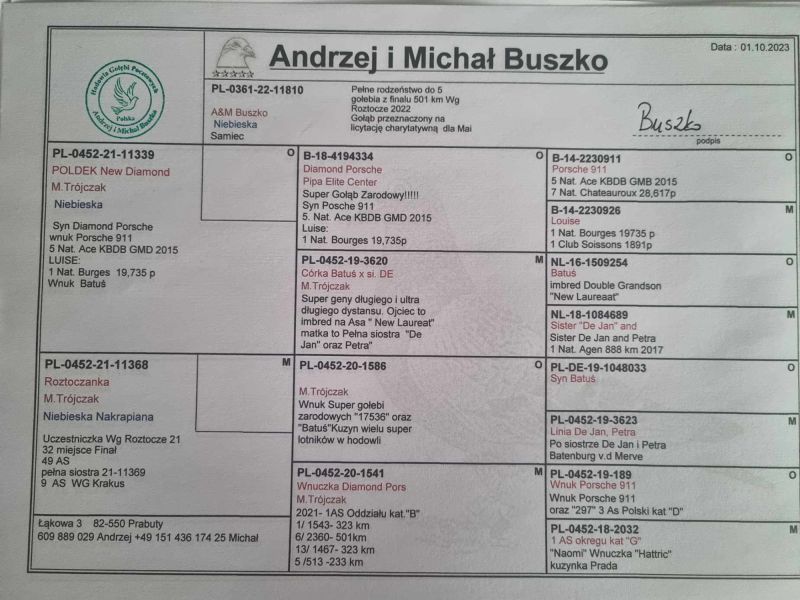 Hodowla Gołębi Pocztowych
Polska
Andrzej i Michał Buszko
Andrzej i Michał Buszko
Data : 01.10.2023
PL-0361-22-11810
A&M Buszko
Niebieska
Samiec
Pełne rodzeństwo do 5
gołebia z finału 501 km Wg
Roztocze 2022
Gołąb przeznaczony na
licytację charytatywną dla Mai
Buszko
podpis
PL-0452-21-11339
O
POLDEK New Diamond
M.Trójczak
Niebieska
Syn Diamond Porsche
wnuk Porsche 911
5 Nat. Ace KBDB GMD 2015
LUISE:
1 Nat. Burges 19,735 p
Wnuk Batuś
PL-0452-21-11368
M
Roztoczanka
M.Trójczak
Niebieska Nakrapiana
Uczestniczka Wg Roztocze 21
32 miejsce Finał
49 AS
pełna siostra 21-11369
9 AS WG Krakus
Łąkowa 3 82-550 Prabuty
609 889 029 Andrzej +49 151 436 174 25 Michał
B-18-4194334
O
Diamond Porsche
Pipa Elite Center
Super Gołąb Zarodowy!!!!!
Syn Posche 911
5. Nat. Ace KBDB GMD 2015
Luise:
1 Nat. Bourges 19,735p
PL-0452-19-3620
M
Córka Batuś x si. DE
M.Trójczak
Super geny długiego i ultra
długiego dystansu. Ojciec to
imbred na Asa " New Laureat"
matka to Pełna siostra "De
Jan" oraz Petra"
PL-0452-20-1586
O
M.Trójczak
Wnuk Super gołebi
zarodowych "17536" oraz
"Batuś"Kuzyn wielu super
lotników w hodowli
PL-0452-20-1541
M
Wnuczka Diamond Pors
M.Trójczak
2021- 1AS Oddziału kat."B"
1/ 1543- 323 km
6/ 2360- 501km
13/ 1467- 323 km
5 /513 -233 km
B-14-2230911
O
Porsche 911
5 Nat. Ace KBDB GMB 2015
7 Nat. Chateauroux 28,617p
B-14-2230926
M
Louise
1 Nat. Bourges 19735 p
1 Club Soissons 1891p
NL-16-1509254
O
Batuś
imbred Double Grandson
"New Laureaat"
NL-18-1084689
M
Sister "De Jan" and
Sister De Jan and Petra
1 Nat. Agen 888 km 2017
PL-DE-19-1048033
O
Syn Batuś
PL-0452-19-3623
M
Linia De Jan, Petra
Po siostrze De Jan i Petra
Batenburg v.d Merve
PL-0452-19-189
O
Wnuk Porsche 911
Wnuk Porsche 911
oraz "297" 3 As Polski kat "D"
PL-0452-18-2032
M
1 AS okregu kat "G"
"Naomi" Wnuczka "Hattric"
kuzynka Prada